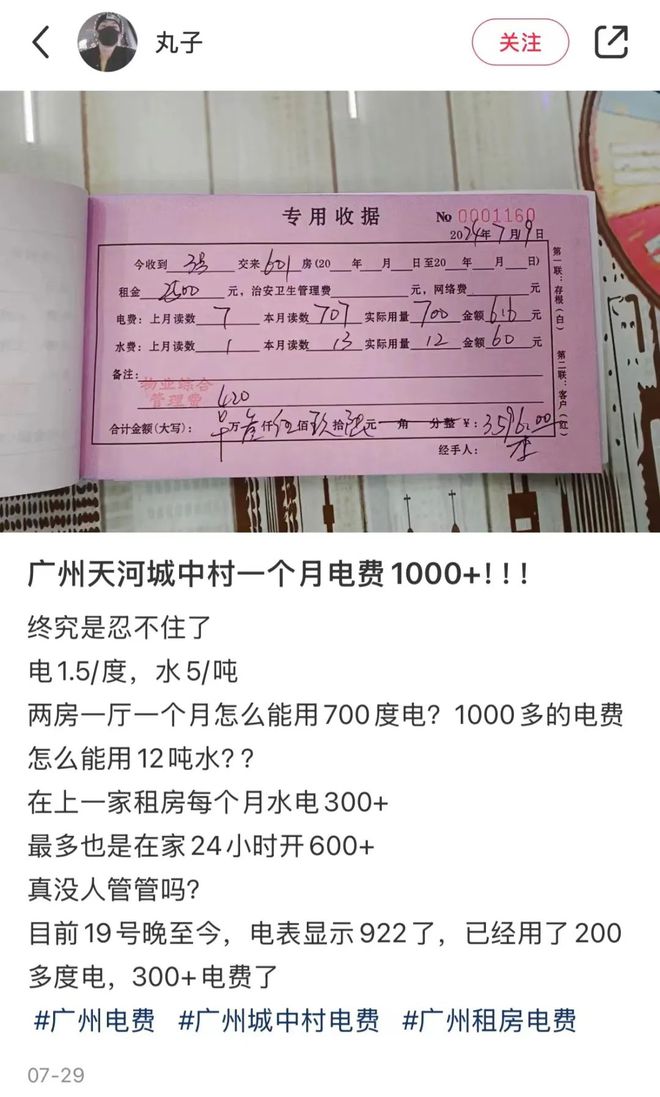 丸子
关注
专用收据
No 0001160
2024年7月19日
今收到 交来601房(20 年 月 日至20 年 月 日)
租金2500元,治安卫生管理费 元,网络费 元
电费:上月读数7本月读数707实际用量700金额616元
水费:上月读数1本月读数13实际用量12金额60元
备注:
物业综合
管理费 420
合计金额(大写): 万叁仟伍佰玖拾 元 角 分整 ¥:3596.00
经手人:
第一联:存根(白)
第二联:客户(红)
广州天河城中村一个月电费1000+!!!
终究是忍不住了
电1.5/度,水5/吨
两房一厅一个月怎么能用700度电?1000多的电费
怎么能用12吨水??
在上一家租房每个月水电300+
最多也是在家24小时开600+
真没人管管吗?
目前19号晚至今,电表显示922了,已经用了200
多度电,300+电费了
#广州电费 #广州城中村电费 #广州租房电费
07-29